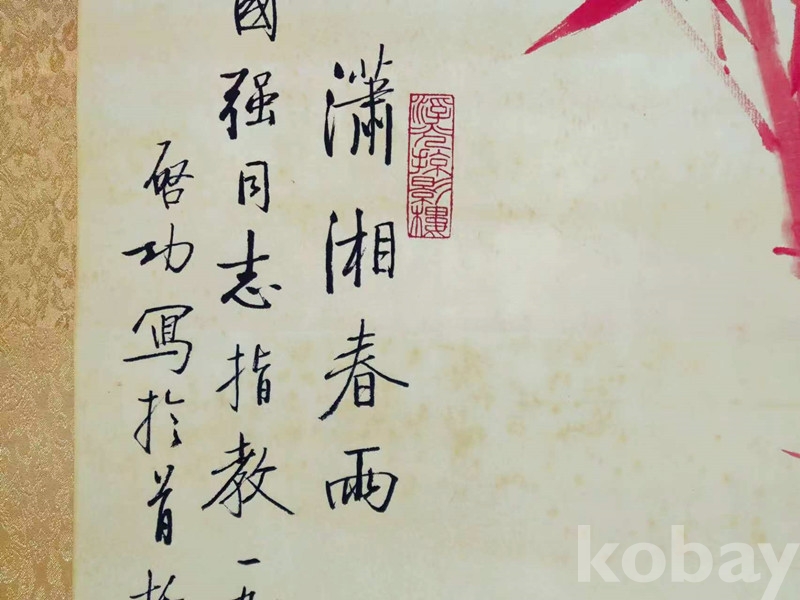 瀟湘春雨
國强同志指教一九
啓功寫於首
浮光掠影樓
kobay